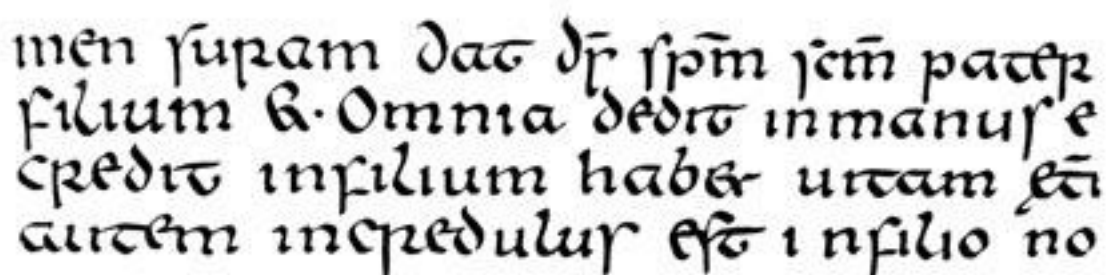 men suram dat ds̄ spm̄ scm̄ pater
filium &· Omnia dedit inmanus e
credit infilium hab& uitam et̄i
autem incredulus est i nfilio no